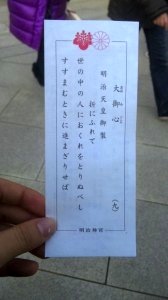 大御心 (九)
明治天皇御製
折にふれて
世の中の人におくれをとりぬべし
すすまむときに進まざりせば
明治神宮